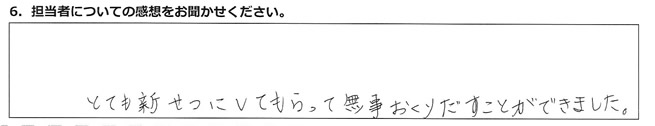 6．担当者についての感想をお聞かせください。
とても新せつにしてもらって無事おくりだすことができました。